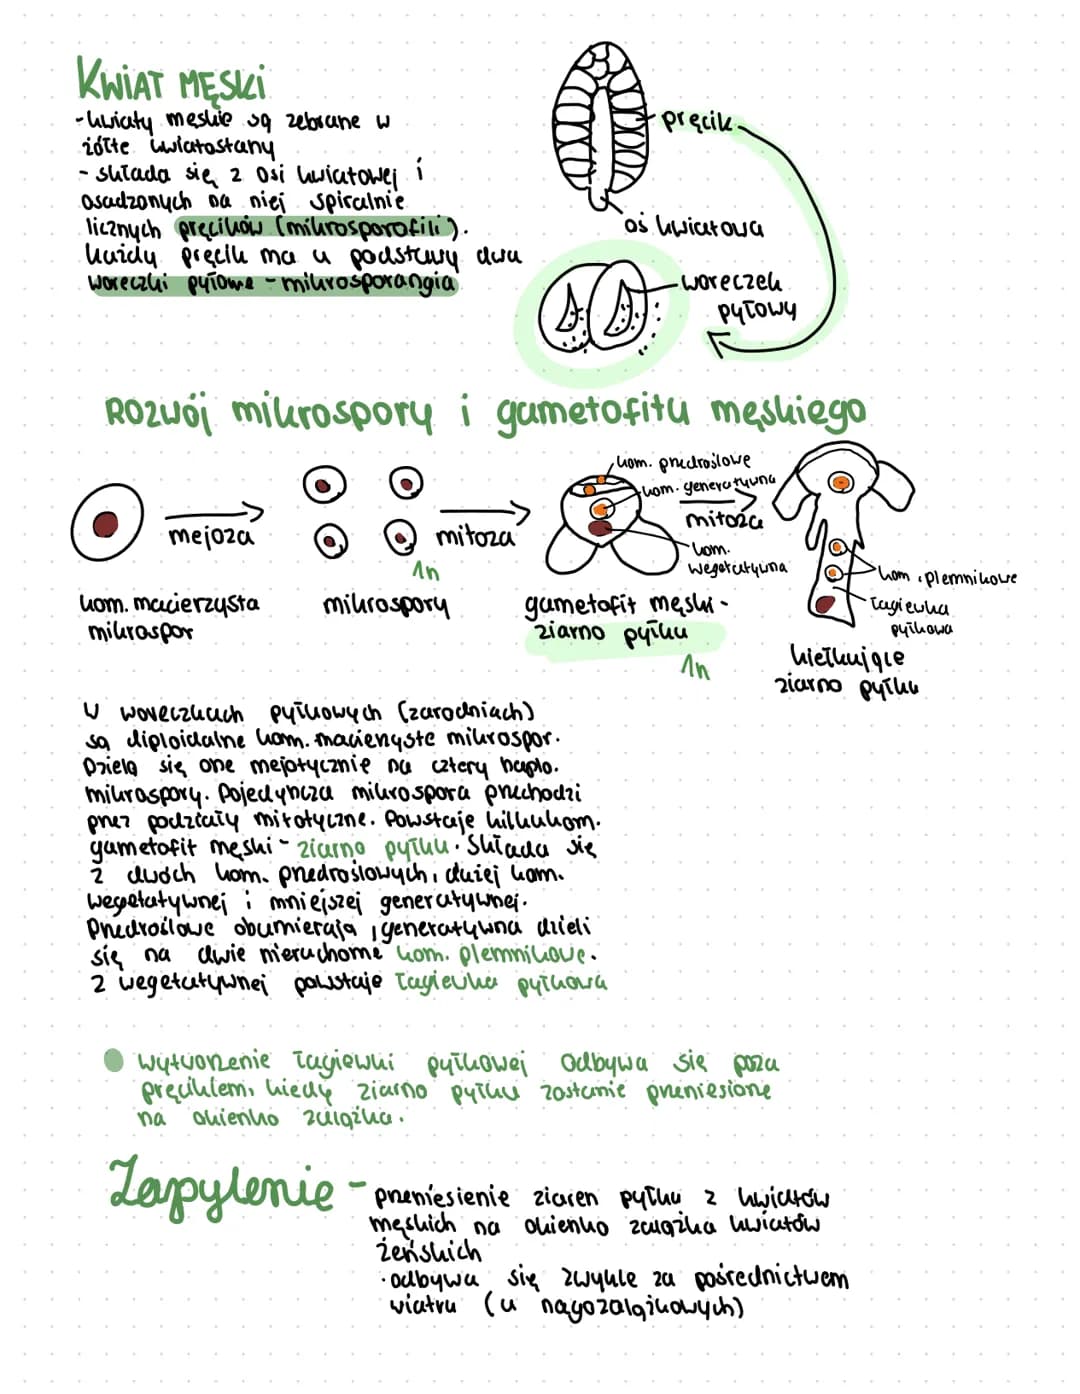 KWIAT MĘSKI
- kwiaty męskie są zebrane w
żółte kwiatostany
- składa się z osi kwiatowej i
osadzonych na niej spiralnie
licznych pręcików (mikrosporofili).
każdy pręcik ma u podstawy dwa
woreczki pyłowe - mikrosporangia
pręcik
oś kwiatowa
woreczek
pyłowy
Rozwój mikrospory i gametofitu męskiego
kom. przedroślowe
kom. generatywna
mejoza
mitoza
mitoza
kom.
wegetatywna
1n
kom. plemnikowe
łagiewka
pyłkowa
kom. macierzysta
mikrospor
mikrospory
gametofit męski -
ziarno pyłku
1n
kiełkujące
ziarno pyłku
W woreczkach pyłkowych (zarodniach)
są diploidalne kom. macierzyste mikrospor.
Dzielą się one mejotycznie na cztery haplo.
mikrospory. Pojedyncza mikrospora przechodzi
przez podziały mitotyczne. Powstaje kilkukom.
gametofit męski - ziarno pyłku. Składa się
z dwóch kom. przedroślowych, dużej kom.
wegetatywnej i mniejszej generatywnej.
Przedroślowe obumierają, generatywna dzieli
się na dwie nieruchome kom. plemnikowe.
z wegetatywnej powstaje łagiewka pyłkowa
wytworzenie łagiewki pyłkowej odbywa się poza
pręcikiem, kiedy ziarno pyłku zostanie przeniesione
na okienko zalążka.
Zapylenie - przeniesienie ziaren pyłku z kwiatów
męskich na okienko zalążka kwiatów
żeńskich
· odbywa się zwykle za pośrednictwem
wiatru (u nagozalążkowych)